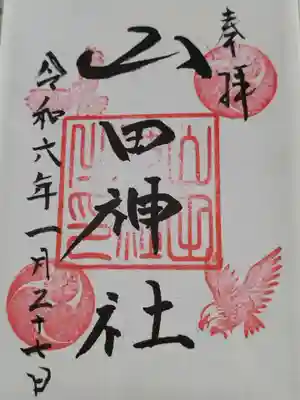 奉拝
山田神社
令和六年一月二十七日